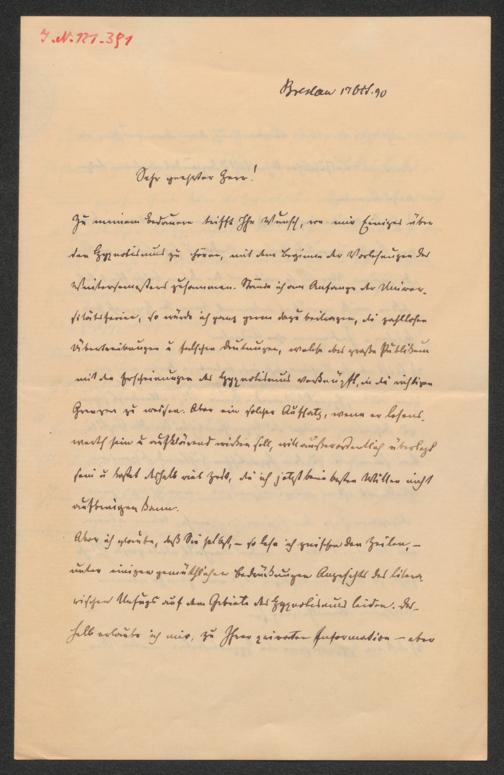 J. N. 121.391
Breslau 17 Oct. 90
Sehr geehrter Herr!
Zu meinem Bedauern trifft Ihr Wunsch, von mir Einiges über
den Hypnotismus zu hören, mit dem Beginne der Vorlesungen des
Wintersemesters zusammen. Stände ich am Anfange der Univer-
sitätsferien, so würde ich ganz gern dazu beitragen, die zahllosen
Übertreibungen u falschen Deutungen, welche das große Publikum
mit den Erscheinungen des Hypnotismus verknüpft, in die richtigen
Grenzen zu weisen. Aber ein solcher Aufsatz, wenn er lesens-
werth sein u aufklärend wirken soll, will außerordentlich überlegt
sein u kostet deshalb viel Zeit, die ich jetzt beim besten Willen nicht
aufbringen kann.
Aber ich glaube, daß Sie selbst, – so lese ich zwischen den Zeilen, –
unter einigen gemüthlichen Bedrückungen Angesichts des litera-
rischen Unfugs auf dem Gebiete des Hypnotismus leiden. Des-
halb erlaube ich mir, zu Ihrer privaten Information – aber